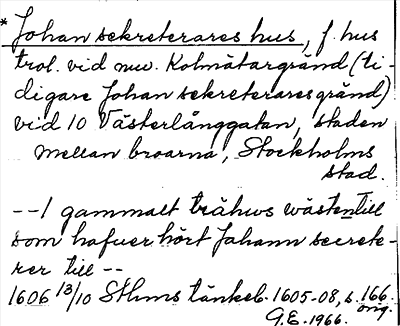 * Johan sekreterares hus, f. hus
trol. vid nuv. Kolmätargränd (ti-
digare Johan sekreteraresgränd)
vid 10 Västerlånggatan, staden
mellan broarna, Stockholms
stad.
-- I gammalt trähws wästentill
som hafuer hört Johann secrete-
rer till --
1606 13/10 Sthms tänkeb. 1605-08, s. 166.
orig.
G.E. 1966.